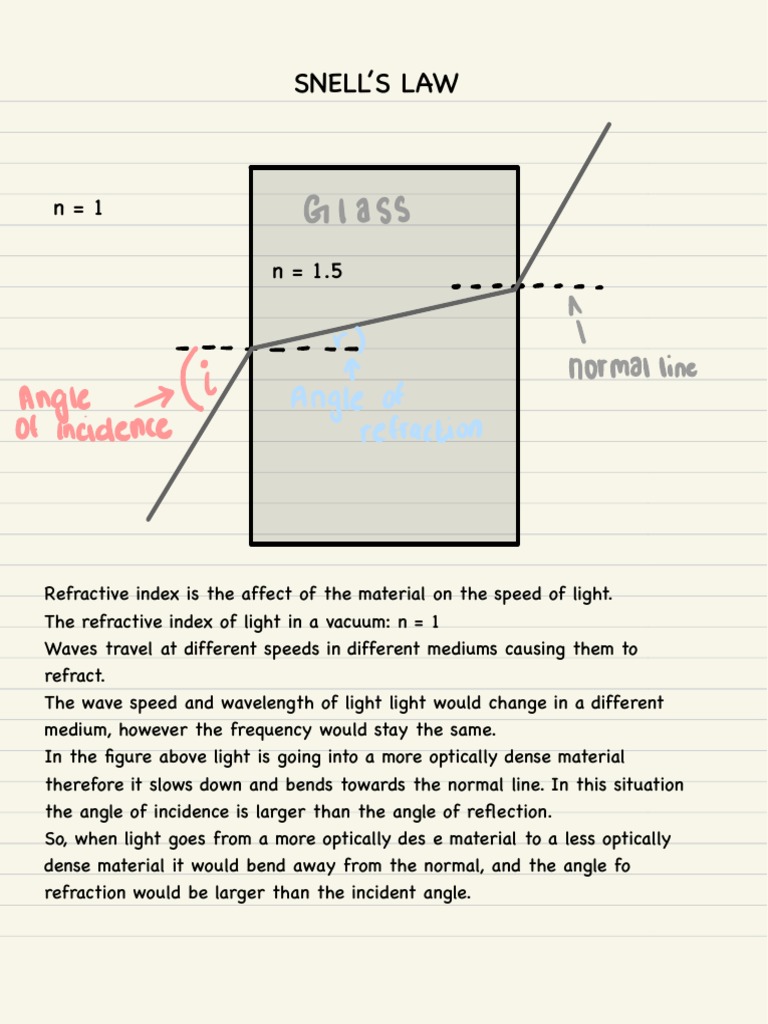 SNELL'S LAW
n = 1
Glass
n = 1.5
normal line
i
Angle
Of incidence
Angle of
refraction
Refractive index is the affect of the material on the speed of light.
The refractive index of light in a vacuum: n = 1
Waves travel at different speeds in different mediums causing them to
refract.
The wave speed and wavelength of light light would change in a different
medium, however the frequency would stay the same.
In the figure above light is going into a more optically dense material
therefore it slows down and bends towards the normal line. In this situation
the angle of incidence is larger than the angle of reflection.
So, when light goes from a more optically des e material to a less optically
dense material it would bend away from the normal, and the angle fo
refraction would be larger than the incident angle.